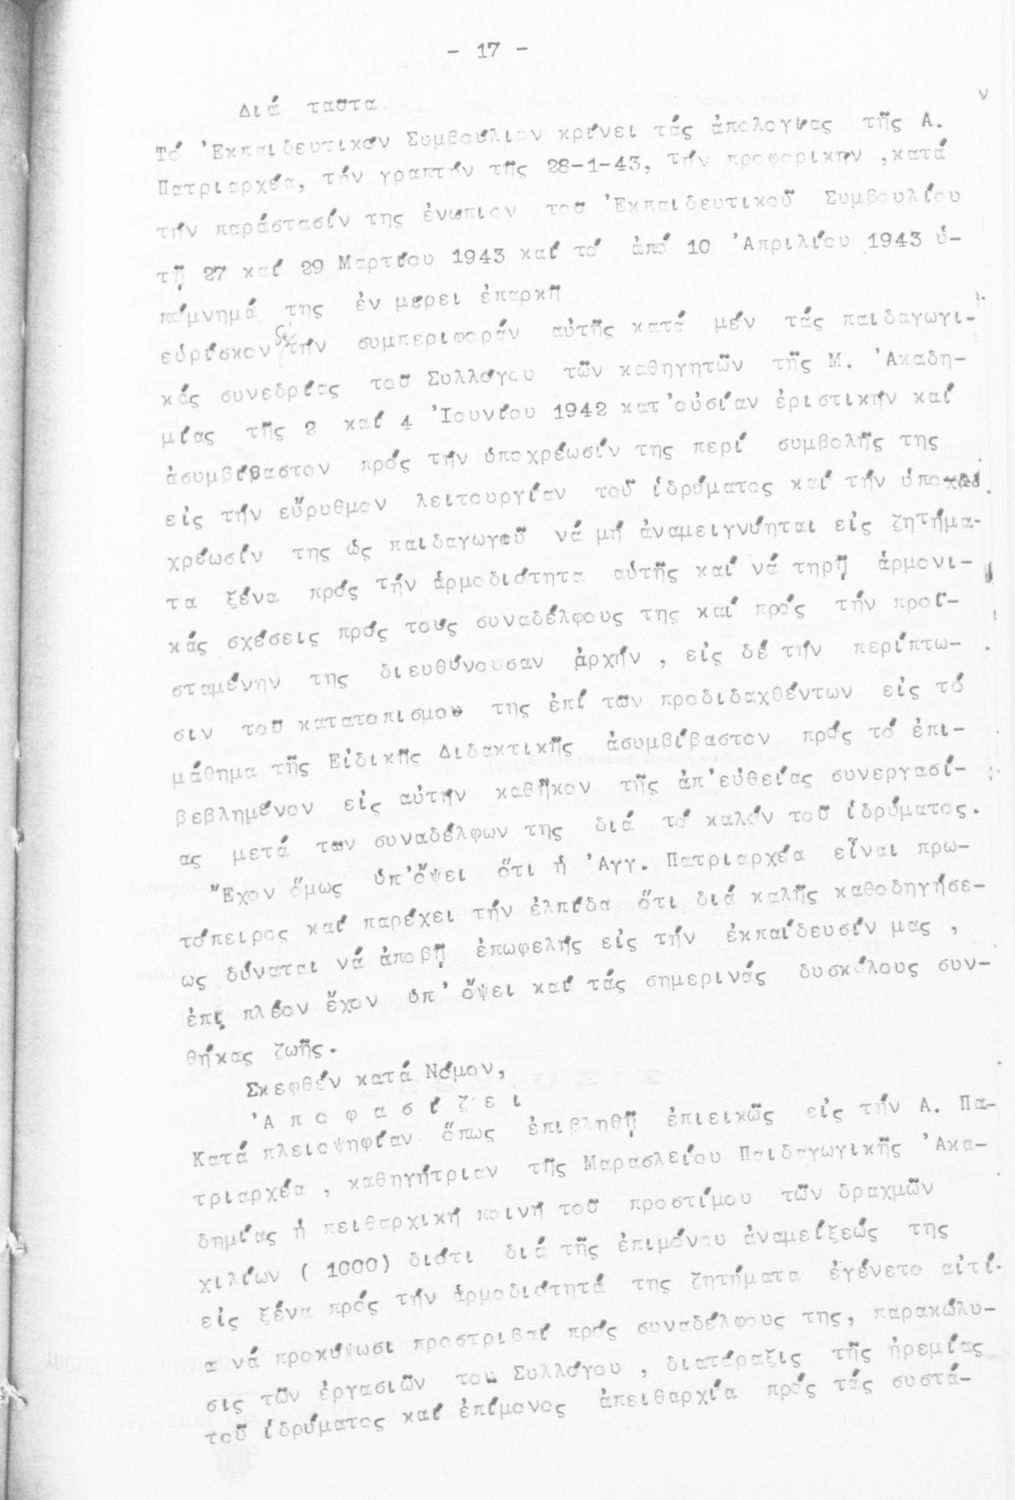 - 17 -
Διά ταῦτα
Τό Ἐκπαιδευτικόν Συμβούλιον κρίνει τάς ἀπολογίας τῆς Α.
Πατριαρχέα, τήν γραπτήν τῆς 28-1-43, τήν προφορικήν ,κατά
τήν παράστασίν της ἐνώπιον τοῦ Ἐκπαιδευτικοῦ Συμβουλίου
τῇ 27 καί 29 Μαρτίου 1943 καί τό ἀπό 10 Ἀπριλίου 1943 ὑ-
πόμνημά της ἐν μέρει ἐπαρκῆ
εὑρίσκον δέ τήν συμπεριφοράν αὐτῆς κατά μέν τάς παιδαγωγι-
κάς συνεδρίας τοῦ Συλλόγου τῶν καθηγητῶν τῆς Μ. Ἀκαδη-
μίας τῆς 2 καί 4 Ἰουνίου 1942 κατ'οὐσίαν ἐριστικήν καί
ἀσυμβίβαστον πρός τήν ὑποχρέωσίν της περί συμβολῆς της
εἰς τήν εὔρυθμον λειτουργίαν τοῦ ἱδρύματος καί τήν ὑπο-
χρέωσίν της ὡς παιδαγωγοῦ νά μή ἀναμειγνύηται εἰς ζητήμα-
τα ξένα πρός τήν ἁρμοδιότητα αὐτῆς καί νά τηρῇ ἁρμονι-
κάς σχέσεις πρός τούς συναδέλφους της καί πρός τήν προϊ-
σταμένην της διευθύνουσαν ἀρχήν , εἰς δέ τήν περίπτω-
σιν τοῦ κατατοπισμοῦ της ἐπί τῶν προδιδαχθέντων εἰς τό
μάθημα τῆς Εἰδικῆς Διδακτικῆς ἀσυμβίβαστον πρός τό ἐπι-
βεβλημένον εἰς αὐτήν καθῆκον τῆς ἀπ'εὐθείας συνεργασί-
ας μετά τῶν συναδέλφων της διά τό καλόν τοῦ ἱδρύματος.
Ἔχον ὅμως ὑπ'ὄψει ὅτι ἡ Ἀγγ. Πατριαρχέα εἶναι πρω-
τόπειρος καί παρέχει τήν ἐλπίδα ὅτι διά καλῆς καθοδηγήσε-
ως δύναται νά ἀποβῇ ἐπωφελής εἰς τήν ἐκπαίδευσίν μας ,
ἐπί πλέον ἔχον ὑπ' ὄψει καί τάς σημερινάς δυσκόλους συν-
θήκας ζωῆς.
Σκεφθέν κατά Νόμον,
Ἀ π ο φ α σ ί ζ ε ι
Κατά πλειοψηφίαν ὅπως ἐπιβληθῇ ἐπιεικῶς εἰς τήν Α. Πα-
τριαρχέα , καθηγήτριαν τῆς Μαρασλείου Παιδαγωγικῆς Ἀκα-
δημίας ἡ πειθαρχική ποινή τοῦ προστίμου τῶν δραχμῶν
χιλίων ( 1000) διότι διά τῆς ἐπιμόνου ἀναμείξεώς της
εἰς ξένα πρός τήν ἁρμοδιότητά της ζητήματα ἐγένετο αἰτί-
α νά προκύψωσι προστριβαί πρός συναδέλφους της, παρακώλυ-
σις τῶν ἐργασιῶν τοῦ Συλλόγου , διατάραξις τῆς ἠρεμίας
τοῦ ἱδρύματος καί ἐπίμονος ἀπειθαρχία πρός τάς συστά-